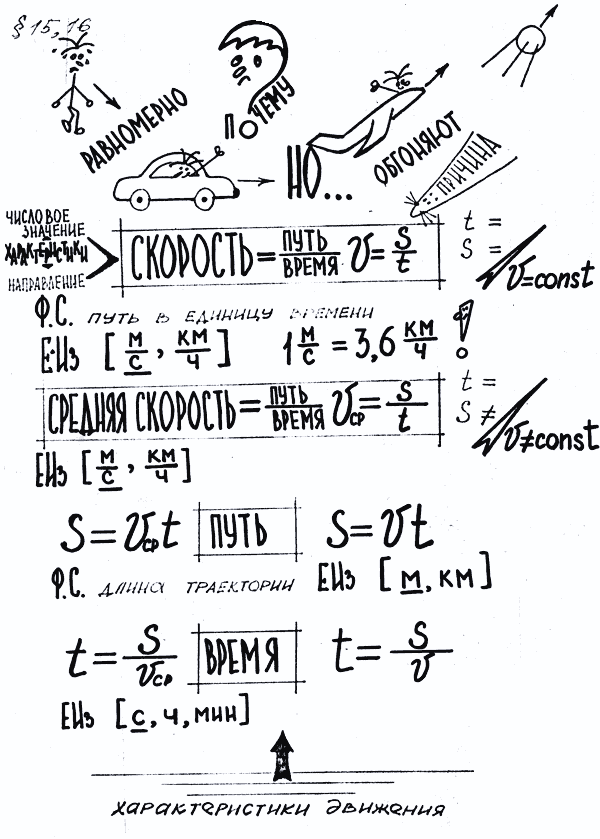 § 15, 16
РАВНОМЕРНО
ПОЧЕМУ
НО...
ОБГОНЯЮТ
ПРИЧИНА
ЧИСЛОВОЕ
ЗНАЧЕНИЕ
ХАРАКТЕРИСТИКИ
НАПРАВЛЕНИЕ
СКОРОСТЬ = ПУТЬ/ВРЕМЯ v = S/t
t =
S =
v = const
Ф.С. ПУТЬ В ЕДИНИЦУ ВРЕМЕНИ
ЕИз [м/с, км/ч] 1 м/с = 3,6 км/ч !
СРЕДНЯЯ СКОРОСТЬ = ПУТЬ/ВРЕМЯ vср = S/t
t =
S ≠
v ≠ const
ЕИз [м/с, км/ч]
S = vср t ПУТЬ S = vt
Ф.С. ДЛИНА ТРАЕКТОРИИ ЕИз [м, км]
t = S/vср ВРЕМЯ t = S/v
ЕИз [с, ч, мин]
характеристики движения